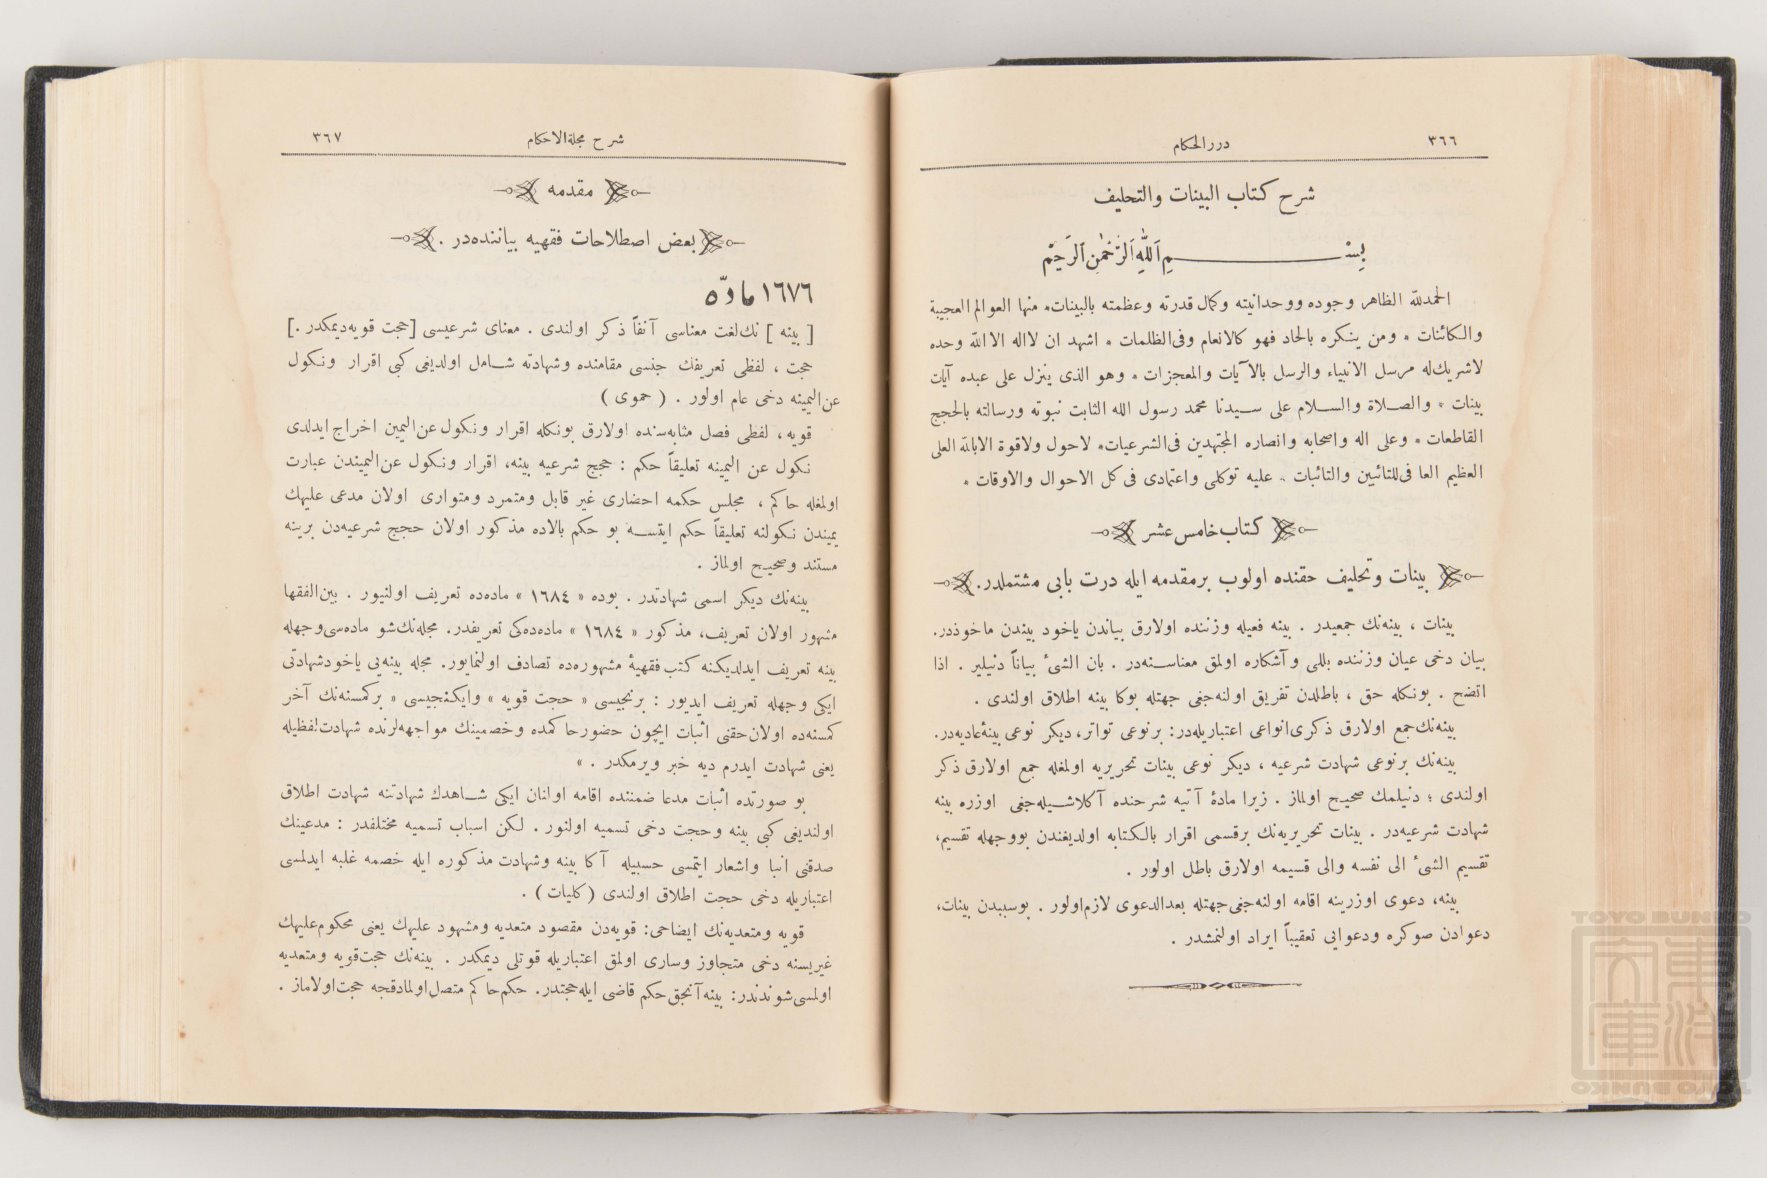 ٣٦٦
دررالحكام
شرح كتاب البينات والتحليف
بِسْمِ اَللّٰهِ اَلرَّحْمٰنِ اَلرَّحِيْم
الحمدلله الظاهر وجوده ووحدانيته وكمال قدرته وعظمته بالبينات٭ منها العوالم العجيبة
والكائنات ٭ ومن ينكره بالحاد فهو كالانعام وفى‌الظلمات ٭ اشهد ان لااله الاالله وحده
لاشريك‌له مرسل الانبياء والرسل بالآيات والمعجزات ٭ وهو الذى ينزل على عبده آيات
بينات ٭ والصلاة والسلام على سيدنا محمد رسول الله الثابت نبوته ورسالته بالحجج
القاطعات ٭ وعلى اله واصحابه وانصاره المجتهدين فى‌الشرعيات٭ لاحول ولاقوة الابالله العلى
العظيم العا فى‌للتائبين والتائبات ٭ عليه توكلى واعتمادى فى كل الاحوال والاوقات ٭
كتاب خامس عشر
بينات وتحليف حقنده اولوب برمقدمه ايله درت بابى مشتملدر.
بينات ، بينه‌نك جمعيدر . بينه فعيله وزننده اولارق بياندن ياخود بيندن ماخوذدر.
بيان دخى عيان وزننده بللى وآشكاره اولمق معناسنه‌در . بان الشئ بياناً دنيلير . اذا
اتضح . بونكله حق ، باطلدن تفريق اولنه‌جغى جهتله بوكا بينه اطلاق اولندى .
بينه‌نك جمع اولارق ذكرى‌انواعى اعتباريله‌در: برنوعى تواتر، ديكر نوعى بينۀعاديه‌در.
بينه‌نك برنوعى شهادت شرعيه ، ديكر نوعى بينات تحريريه اولمغله جمع اولارق ذكر
اولندى ؛ دنيلمك صحيح اولماز . زيرا مادۀ آتيه شرحنده آكلاشيله‌جغى اوزره بينه
شهادت شرعيه‌در . بينات تحريريه‌نك برقسمى اقرار بالكتابه اولديغندن بووجهله تقسيم،
تقسيم الشئ الى نفسه والى قسيمه اولارق باطل اولور .
بينه، دعوى اوزرينه اقامه اولنه‌جغى‌جهتله بعدالدعوى لازم‌اولور . بوسببدن بينات،
دعوادن صوكره ودعوايى تعقيباً ايراد اولنمشدر .
شرح مجلة‌الاحكام
٣٦٧
مقدمه
بعض اصطلاحات فقهيه بياننده‌در .
١٦٧٦ مادّه
[ بينه ] نك‌لغت معناسى آنفاً ذكر اولندى . معناى شرعيسى [حجت قويه‌ديمكدر .]
حجت ، لفظى تعريفك جنسى مقامنده وشهادته شامل اولديغى كبى اقرار ونكول
عن‌اليمينه دخى عام اولور . ( حموى )
قويه ، لفظى فصل مثابه‌سنده اولارق بونكله اقرار ونكول عن‌اليمين اخراج ايدلدى
نكول عن اليمينه تعليقاً حكم : حجج شرعيه بينه، اقرار ونكول عن‌اليميندن عبارت
اولمغله حاكم ، مجلس حكمه احضارى غير قابل ومتمرد ومتوارى اولان مدعى عليهك
يميندن نكولنه تعليقاً حكم ايتسه بو حكم بالاده مذكور اولان حجج شرعيه‌دن برينه
مستند وصحيح اولماز .
بينه‌نك ديكر اسمى شهادتدر . بوده « ١٦٨٤ » ماده‌ده تعريف اولنيور . بين‌الفقها
مشهور اولان تعريف، مذكور « ١٦٨٤ » ماده‌ده‌كى تعريفدر. مجله‌نك‌شو ماده‌سى‌وجهله
بينه تعريف ايدلديكنه كتب فقهيۀ مشهوره‌ده تصادف اولنمايور. مجله بينه‌يى ياخودشهادتى
ايكى وجهله تعريف ايديور : برنجيسى « حجت قويه » وايكنجيسى « بركمسنه‌نك آخر
كمسنه‌ده اولان‌حقنى اثبات ايچون حضورحاكمده وخصمينك مواجهه‌لرنده شهادت‌لفظيله
يعنى شهادت ايدرم ديه خبر ويرمكدر . »
بو صورتده اثبات مدعا ضمننده اقامه اولنان ايكى شاهدك شهادتنه شهادت اطلاق
اولنديغى كبى بينه وحجت دخى تسميه اولنور . لكن اسباب تسميه مختلفدر : مدعينك
صدقنى انبا واشعار ايتمسى حسبيله آكا بينه وشهادت مذكوره ايله خصمه غلبه ايدلمسى
اعتباريله دخى حجت اطلاق اولندى ( كليات ) .
قويه ومتعديه‌نك ايضاحى: قويه‌دن مقصود متعديه ومشهود عليهك يعنى محكوم‌عليهك
غيريسنه دخى متجاوز وسارى اولمق اعتباريله قوتلى ديمكدر . بينه‌نك حجت‌قويه ومتعديه
اولمسى‌شوندندر: بينه‌آنجق‌حكم قاضى ايله‌حجتدر. حكم‌حاكم متصل‌اولمادقجه حجت‌اولاماز .
TOYO BUNKO
東洋文庫
TOYO BUNKO